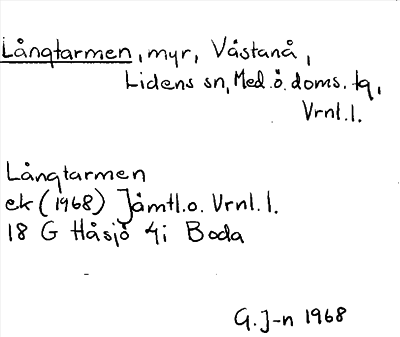 Långtarmen, myr, Västanå,
Lidens sn, Med.ö.doms.tg,
Vrnl.l.
Långtarmen
ek (1968) Jämtl.o. Vrnl.l.
18 G Håsjö 4i Boda
G.J-n 1968